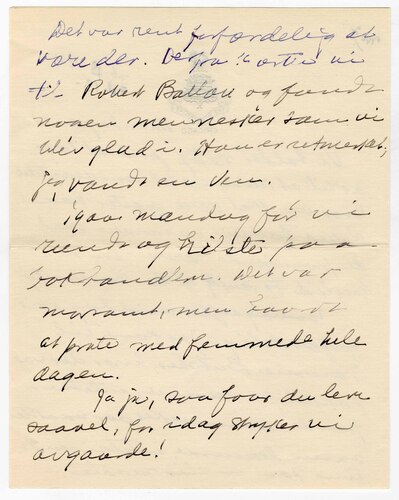 Det var rent forfærdelig at
være der. Derfra kørte vi
til Robert Ballou og fandt
nogen mennesker som vi
blev glad i. Han er utmerket,
jeg vandt en ven.
Igaar mandag før vi
rundt og hilste paa
bokhandlern. Det var
morsomt, men haardt
at prate med fremmede hele
dagen.
Ja ja, saa faar du leve
saavel, for idag stryker vi
avgaarde!